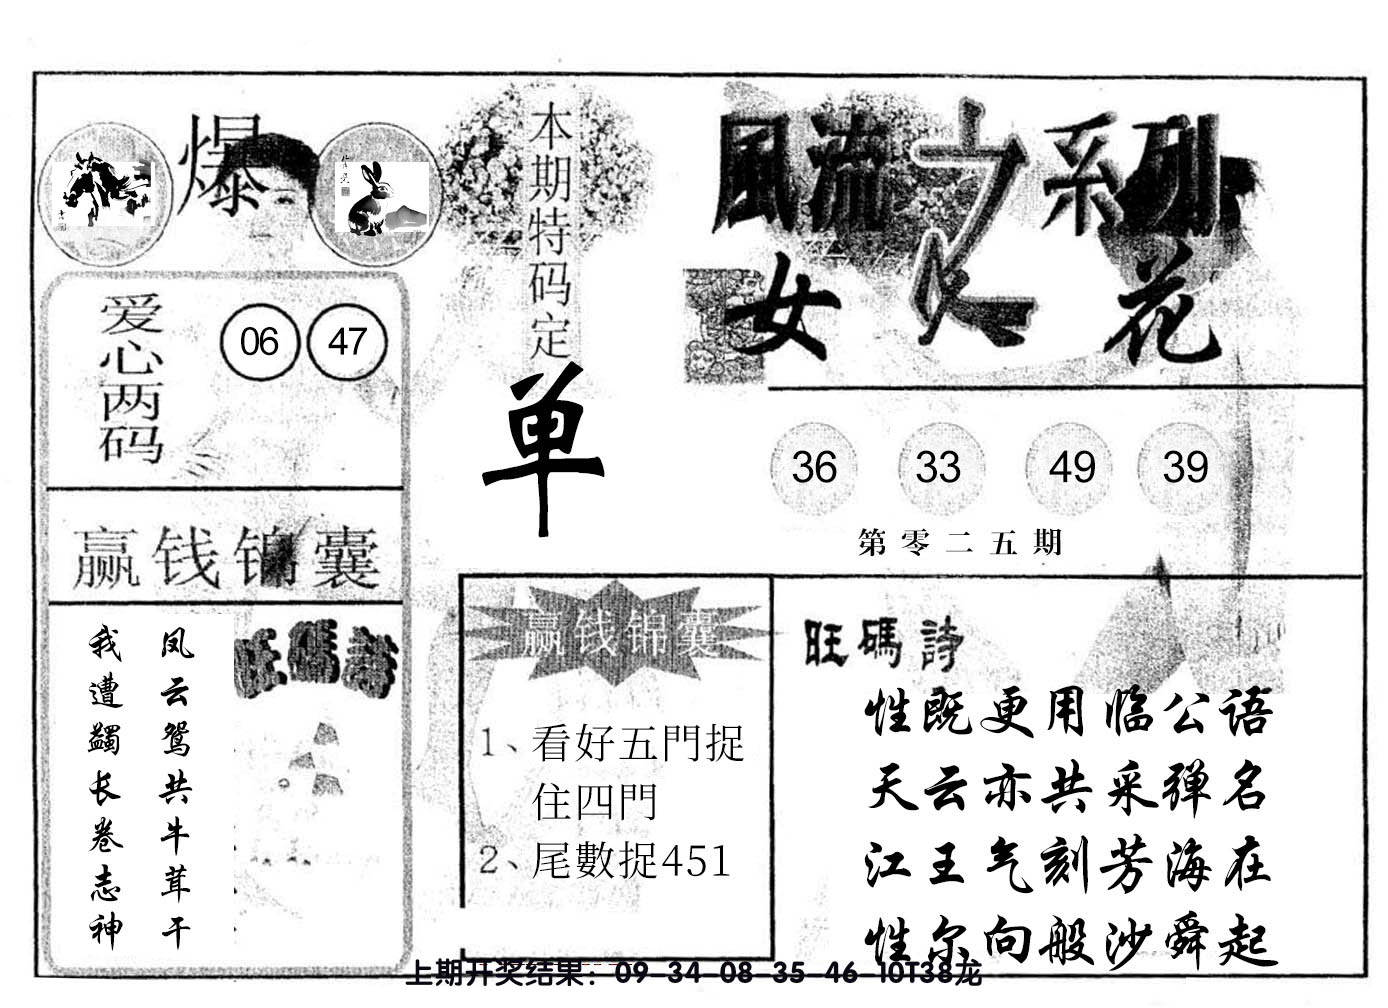 爆
本期特码定
单
風流之系列
女人花
爱心两码
06 47
36 33 49 39
第零二五期
赢钱锦囊
凤云鸳共牛茸干
我遭蠲长卷志神
旺碼詩
赢钱锦囊
1、看好五門捉
住四門
2、尾數捉451
旺碼詩
性既更用临公语
天云亦共采弹名
江王气刻芳海在
性尔向般沙舜起
上期开奖结果：09-34-08-35-46-10T38龙